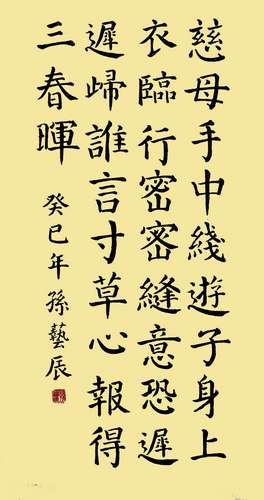 慈母手中綫遊子身上
衣臨行密密縫意恐遲
遲歸誰言寸草心報得
三春暉
癸巳年孫藝辰